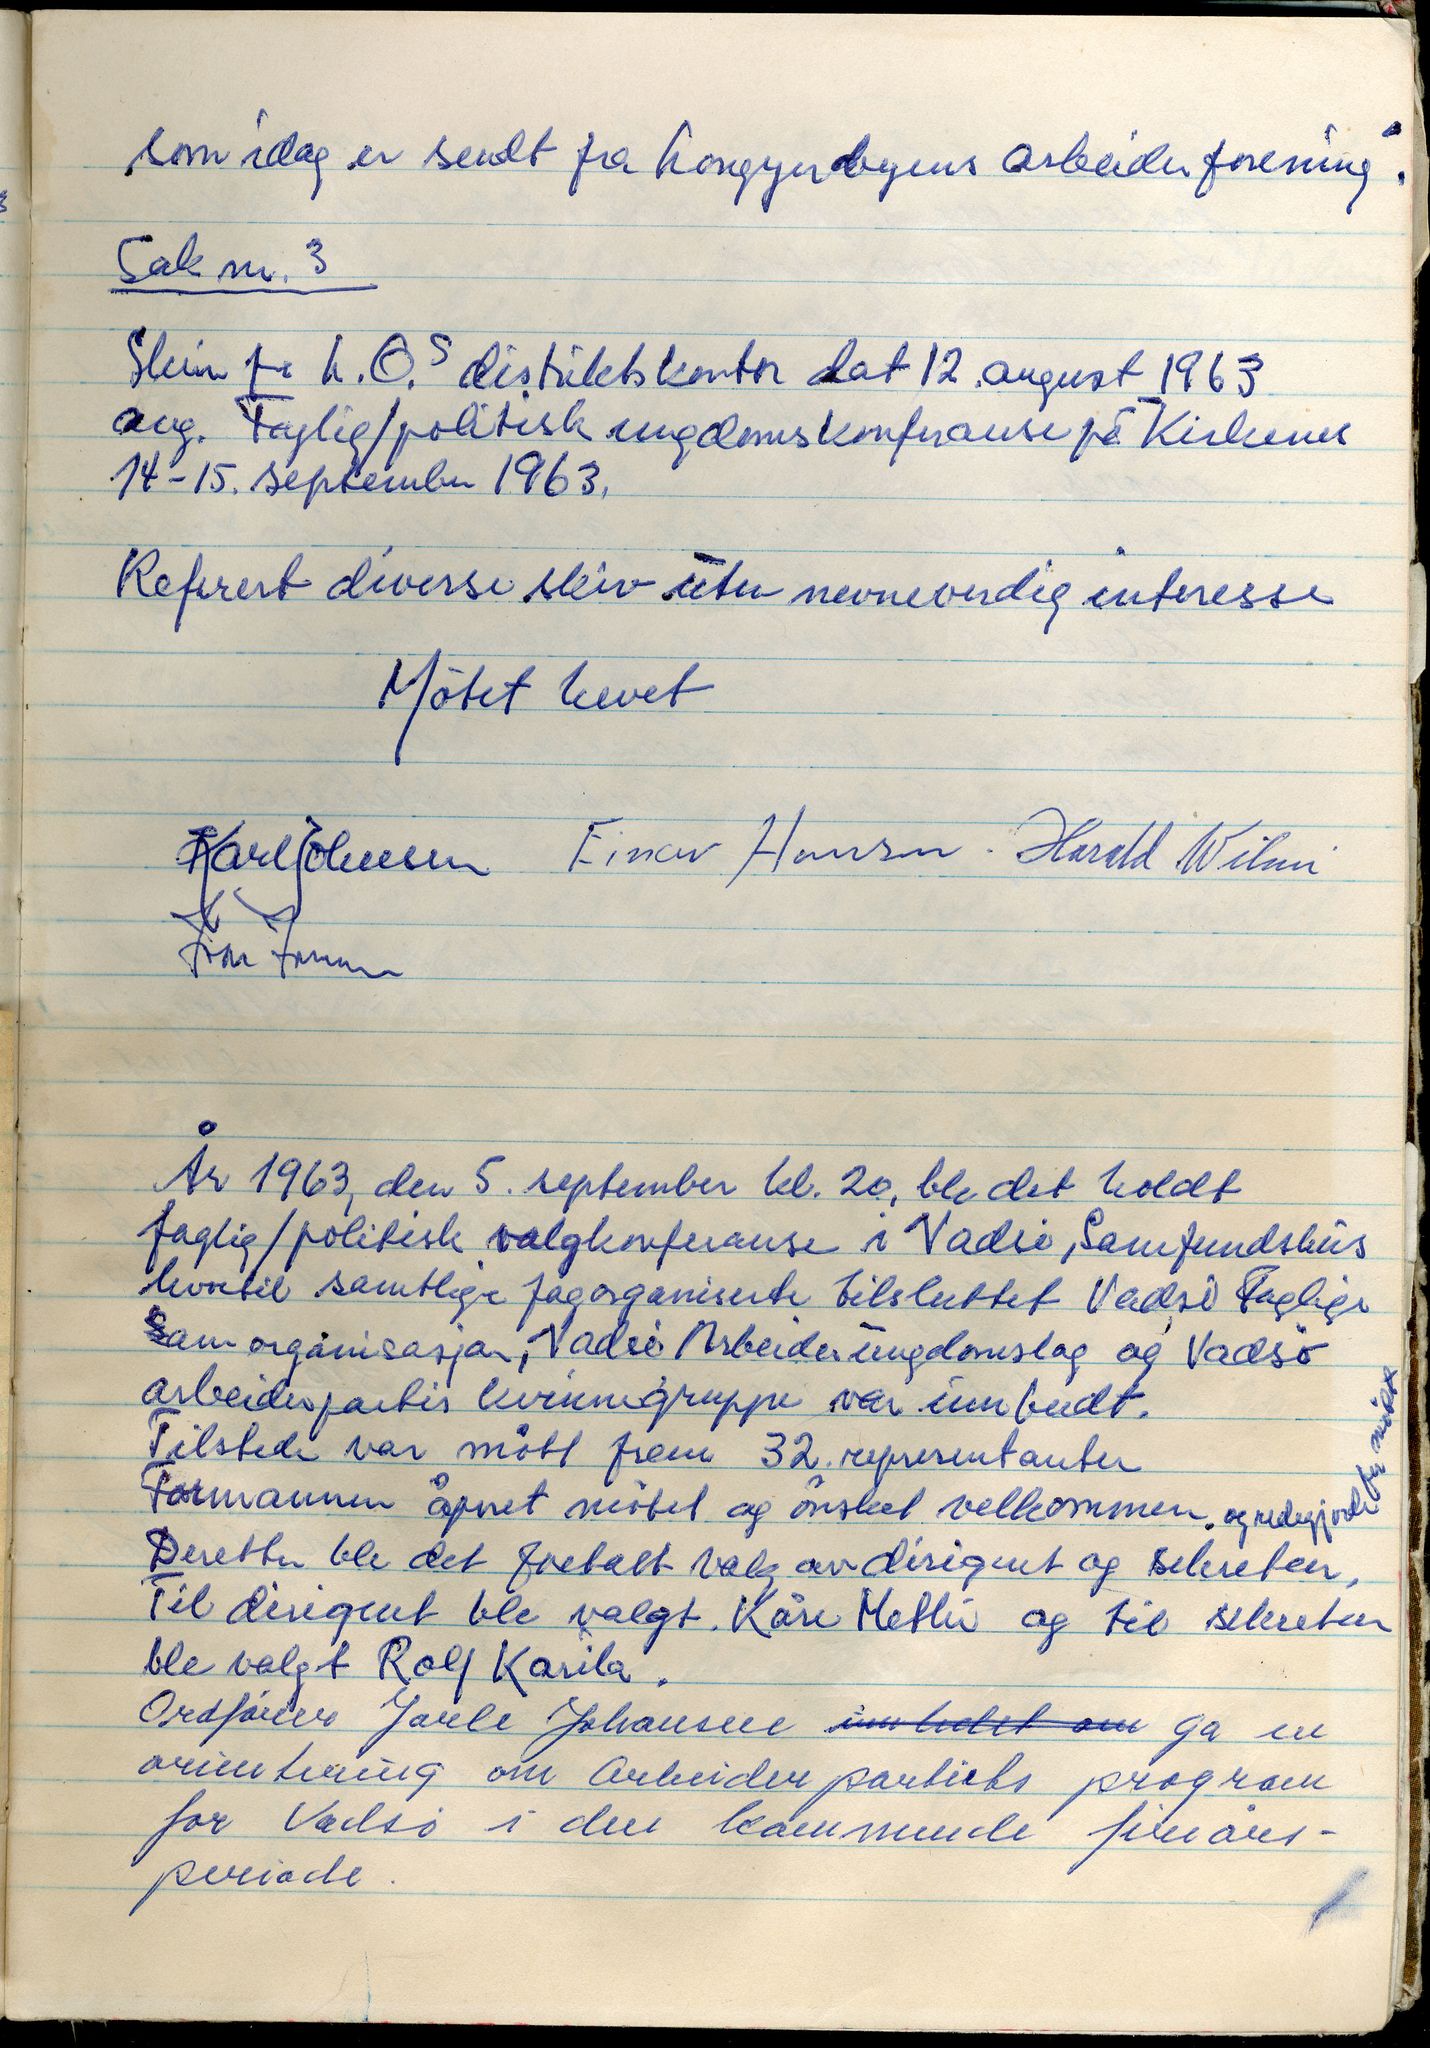 som idag er sendt fra Longyerbyens arbeiderforening".
Sak nr. 3
Skriv fra L.O.s distriktskontor dat 12. august 1963
ang. Faglig/politisk ungdomskonferanse på Kirkenes
14-15. september 1963.
Referert diverse skriv uten nevneverdig interesse
Møtet hevet
Karl Johansen Einar Hansen. Harald Wilmi
År 1963, den 5. september kl. 20, ble det holdt
faglig/politisk valgkonferanse i Vadsö, Samfundshus
hvortil samtlige fagorganiserte tilsluttet Vadsö Faglige
Samorganisasjon, Vadsö Arbeiderungdomslag og Vadsö
arbeiderpartis kvinnegruppe var innbudt.
Tilstede var mött frem 32. representanter
Formannen åpnet mötet og önsket velkommen. og redegjorde for mötet
Deretter ble det foretatt valg av dirigent og sekretær,
Til dirigent ble valgt. Kåre Methi og til sekretær
ble valgt Rolf Karila.
Ordförer Jarle Johansen innledet om ga en
orientering om Arbeiderpartiets program
for Vadsö i den kommende fireårs-
periode.